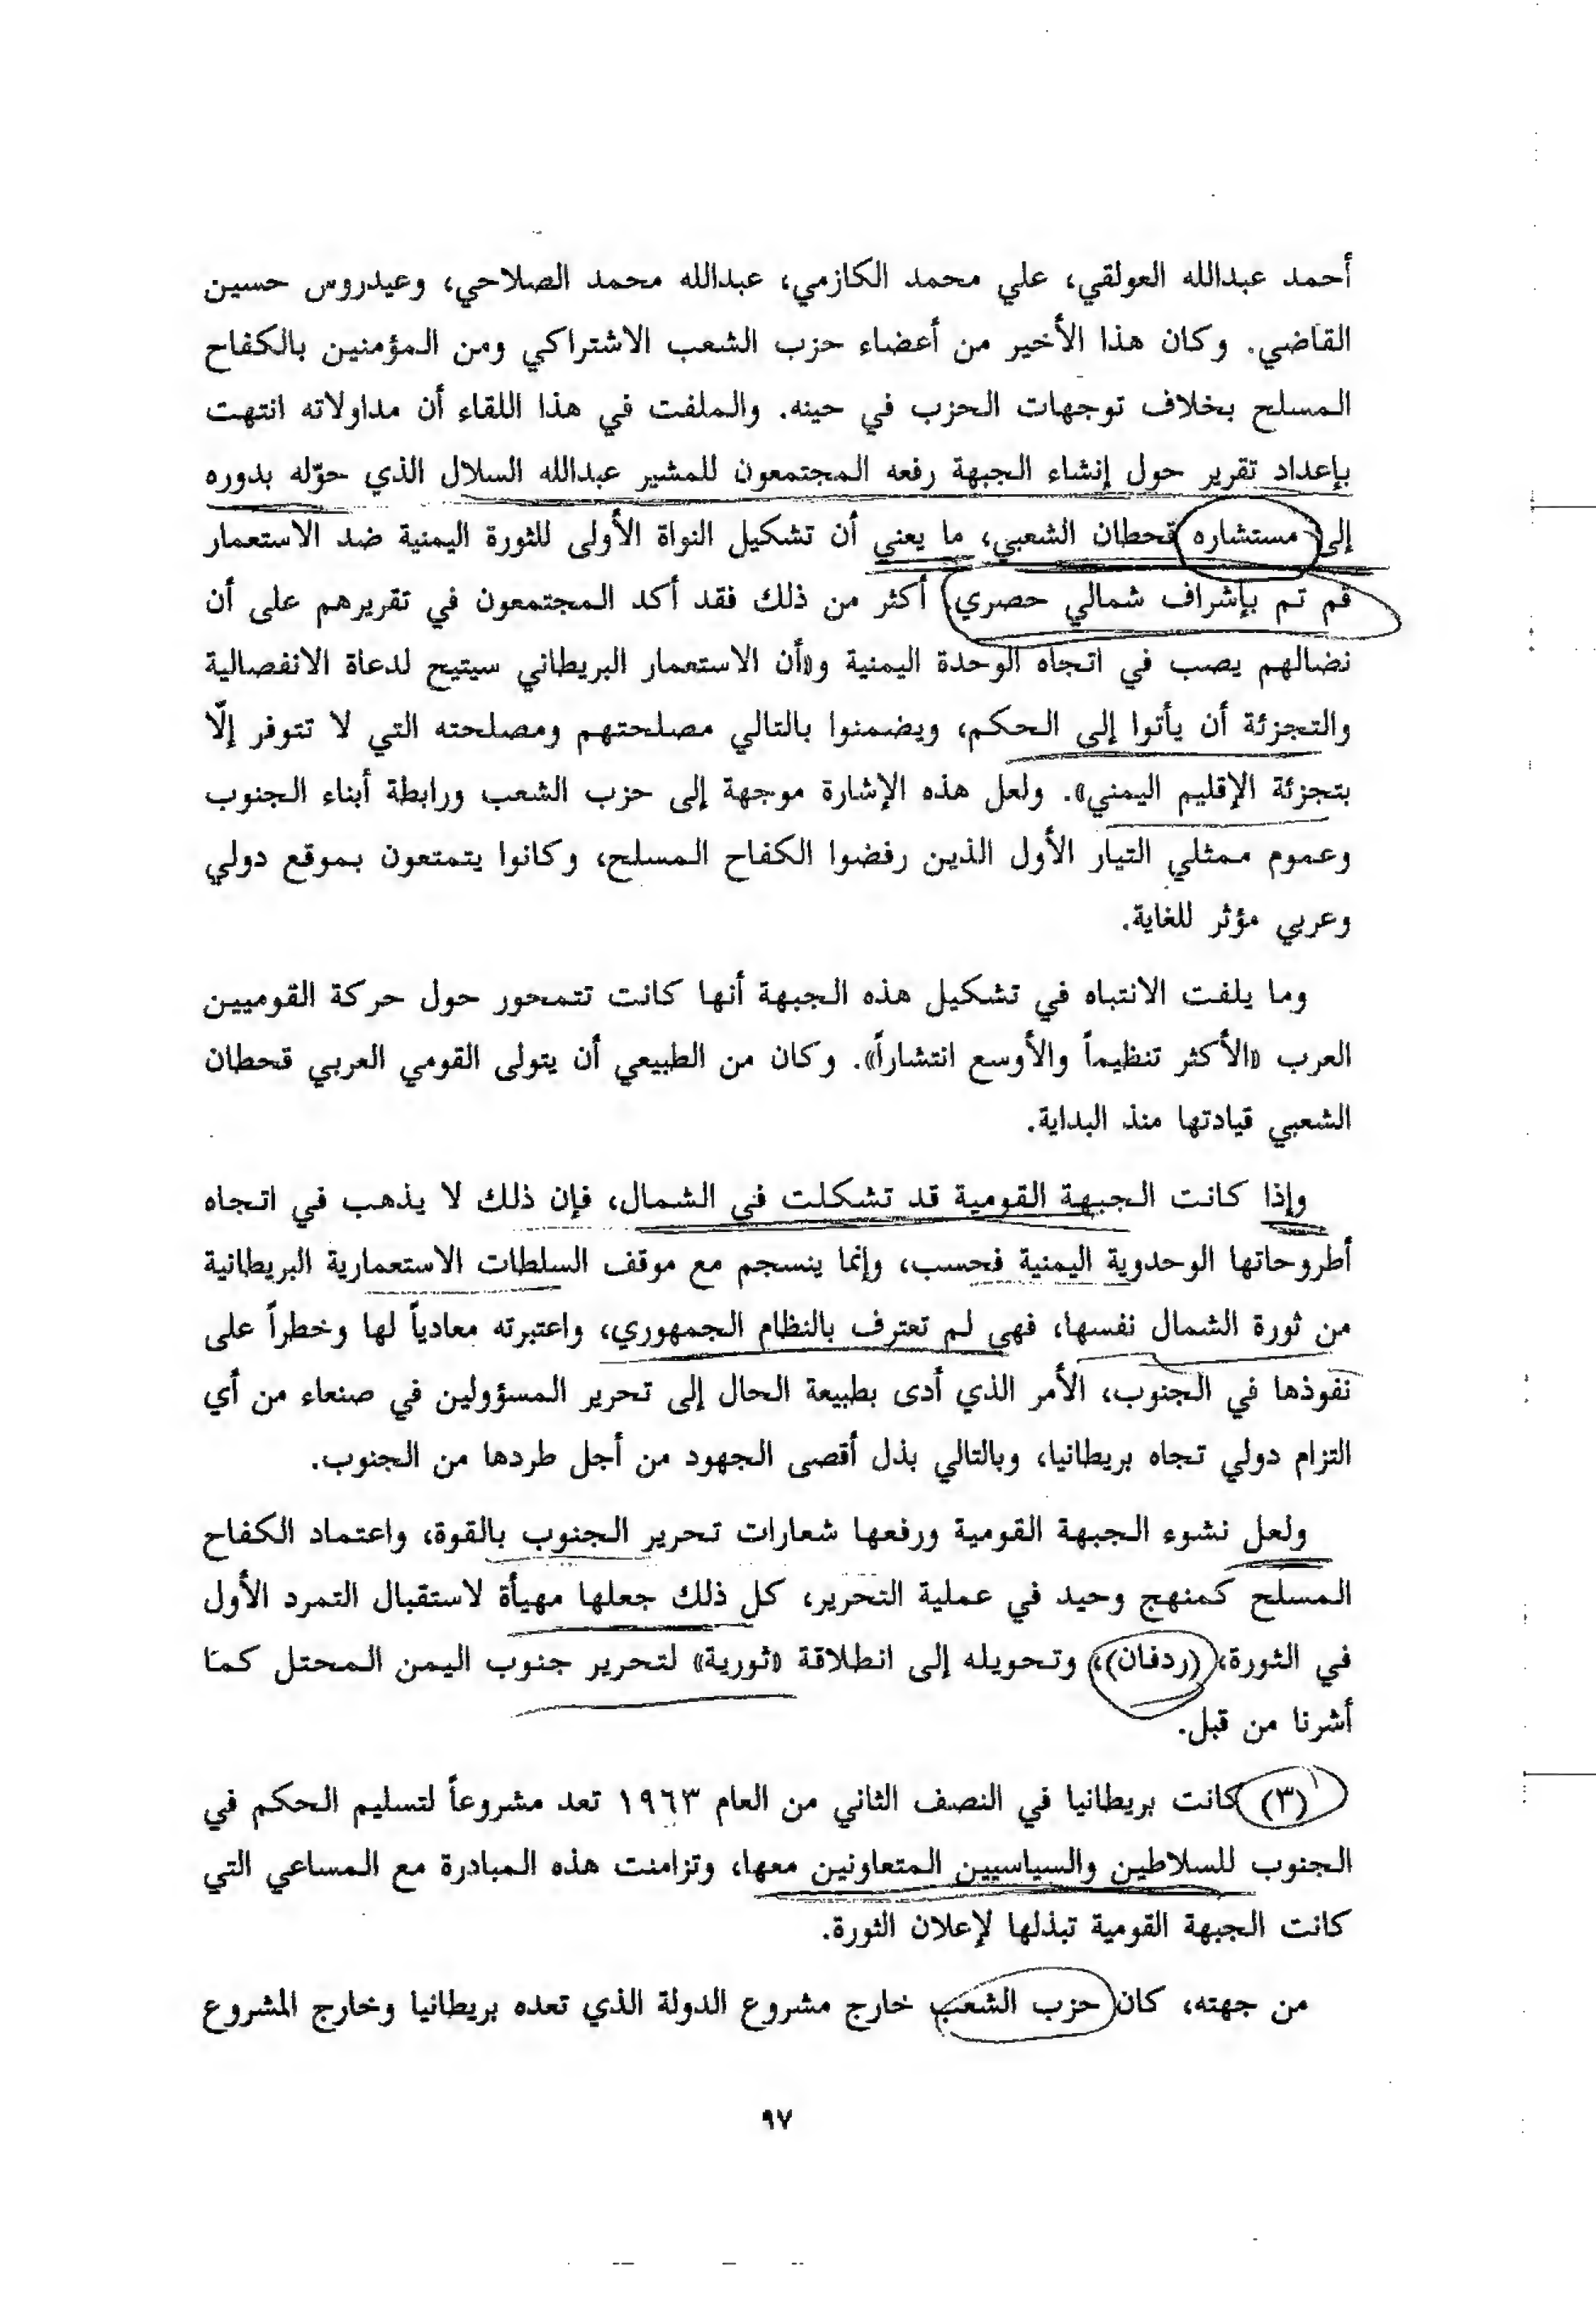 أحمد عبدالله العولقي، علي محمد الكازمي، عبدالله محمد الصلاحي، وعيدروس حسين
القاضي. وكان هذا الأخير من أعضاء حزب الشعب الاشتراكي ومن المؤمنين بالكفاح
المسلح بخلاف توجهات الحزب في حينه. والملفت في هذا اللقاء أن مداولاته انتهت
بإعداد تقرير حول إنشاء الجبهة رفعه المجتمعون للمشير عبدالله السلال الذي حوّله بدوره
إلى مستشاره قحطان الشعبي، ما يعني أن تشكيل النواة الأولى للثورة اليمنية ضد الاستعمار
قم تم بإشراف شمالي حصري. أكثر من ذلك فقد أكد المجتمعون في تقريرهم على أن
نضالهم يصب في اتجاه الوحدة اليمنية و«أن الاستعمار البريطاني سيتيح لدعاة الانفصالية
والتجزئة أن يأتوا إلى الحكم، ويضمنوا بالتالي مصلحتهم ومصلحته التي لا تتوفر إلّا
بتجزئة الإقليم اليمني». ولعل هذه الإشارة موجهة إلى حزب الشعب ورابطة أبناء الجنوب
وعموم ممثلي التيار الأول الذين رفضوا الكفاح المسلح، وكانوا يتمتعون بموقع دولي
وعربي مؤثر للغاية.
وما يلفت الانتباه في تشكيل هذه الجبهة أنها كانت تتمحور حول حركة القوميين
العرب «الأكثر تنظيماً والأوسع انتشاراً». وكان من الطبيعي أن يتولى القومي العربي قحطان
الشعبي قيادتها منذ البداية.
وإذا كانت الجبهة القومية قد تشكلت في الشمال، فإن ذلك لا يذهب في اتجاه
أطروحاتها الوحدوية اليمنية فحسب، وإنما ينسجم مع موقف السلطات الاستعمارية البريطانية
من ثورة الشمال نفسها، فهي لم تعترف بالنظام الجمهوري، واعتبرته معادياً لها وخطراً على
نفوذها في الجنوب، الأمر الذي أدى بطبيعة الحال إلى تحرير المسؤولين في صنعاء من أي
التزام دولي تجاه بريطانيا، وبالتالي بذل أقصى الجهود من أجل طردها من الجنوب.
ولعل نشوء الجبهة القومية ورفعها شعارات تحرير الجنوب بالقوة، واعتماد الكفاح
المسلح كمنهج وحيد في عملية التحرير، كل ذلك جعلها مهيأة لاستقبال التمرد الأول
في الثورة، (ردفان)، وتحويله إلى انطلاقة «ثورية» لتحرير جنوب اليمن المحتل كما
أشرنا من قبل.
(٣) كانت بريطانيا في النصف الثاني من العام ١٩٦٣ تعد مشروعاً لتسليم الحكم في
الجنوب للسلاطين والسياسيين المتعاونين معها، وتزامنت هذه المبادرة مع المساعي التي
كانت الجبهة القومية تبذلها لإعلان الثورة.
من جهته، كان حزب الشعب خارج مشروع الدولة الذي تعده بريطانيا وخارج المشروع
٩٧